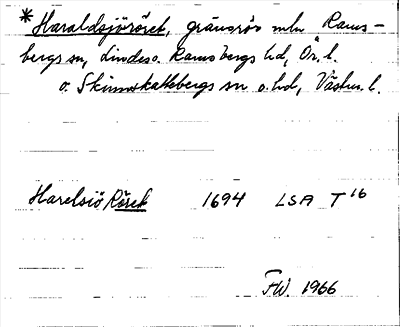 *Haraldsjöröret, gränsrös mln Rams-
bergs sn, Lindes o. Ramsbergs hd, Ör. l.
o. Skinnskattebergs sn o. hd, Västm. l.
Harelsiö Röret 1694 LSA T 16
F.W. 1966